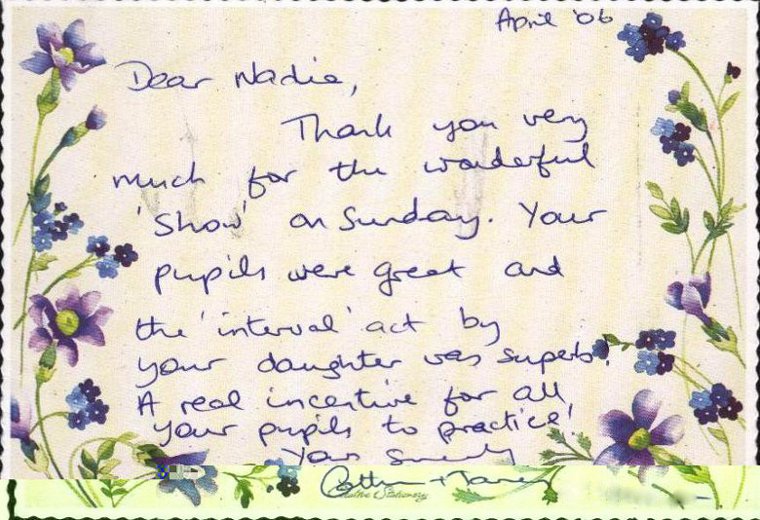 April '06
Dear Nadia,
Thank you very
much for the wonderful
'Show' on Sunday. Your
pupils were great and
the 'interval' act by
your daughter was superb.
A real incentive for all
your pupils to practice!
Yours Sincerely